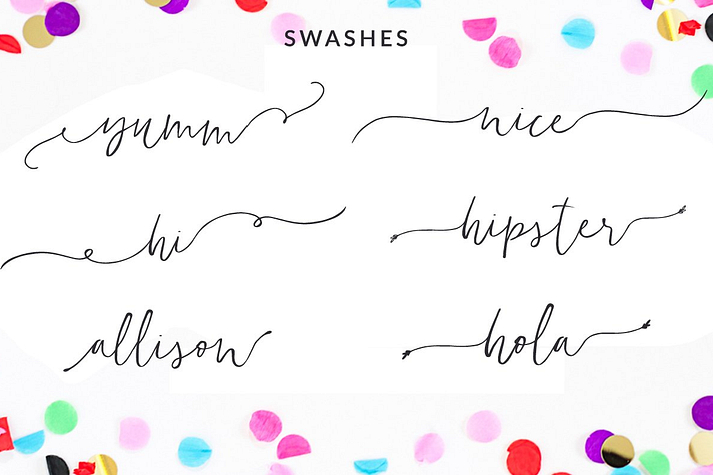 SWASHES
yumm
nice
hi
hipster
allison
hola